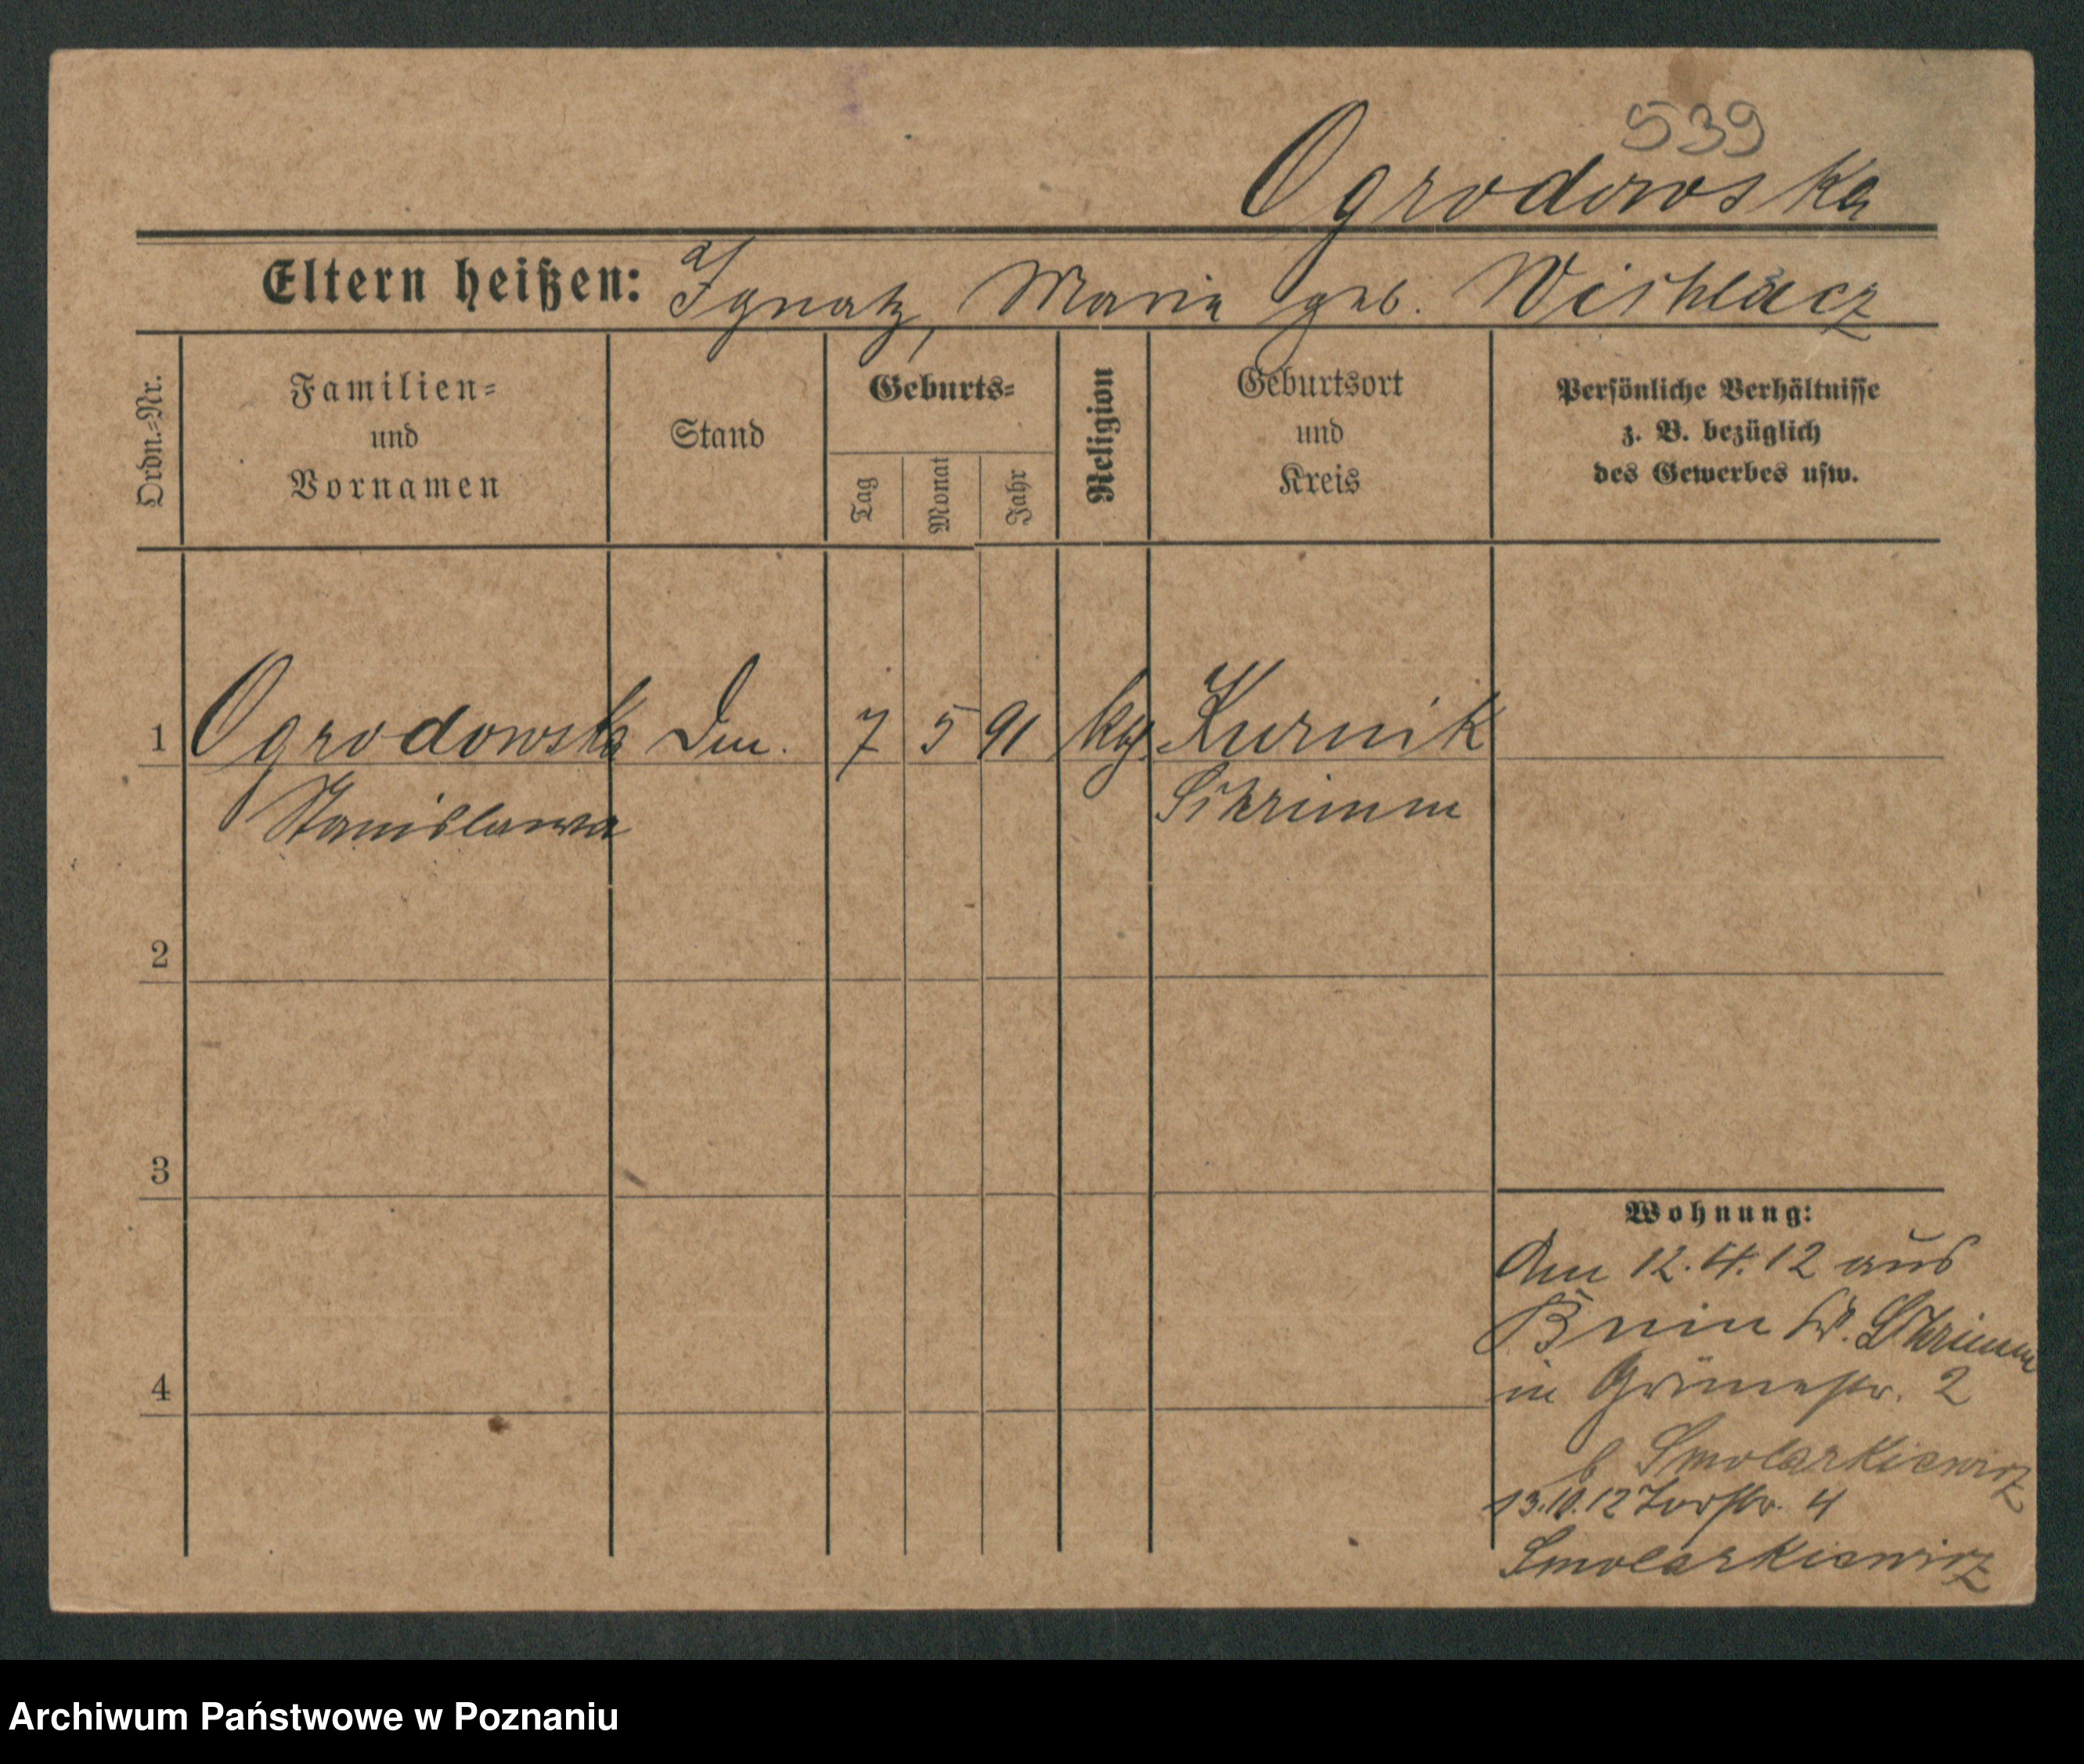 539
Ogrodowska
Eltern heißen: Ignatz, Maria geb.
Ordn.-Nr.
Familien-
und
Vornamen
Stand
Geburts-
Tag
Monat
Jahr
Religion
Geburtsort
und
Kreis
Persönliche Verhältnisse
z. B. bezüglich
des Gewerbes usw.
1 Ogrodowska 7 5 91 Kurnik
Stanislawa Schrimm
2
3
Wohnung:
Am 12.4.12 aus
Bnin Kr. Schrimm
4
in Grünestr. 2
b Smolarkiewicz
13.10.12 Torstr. 4
Smolarkiewicz
Archiwum Państwowe w Poznaniu